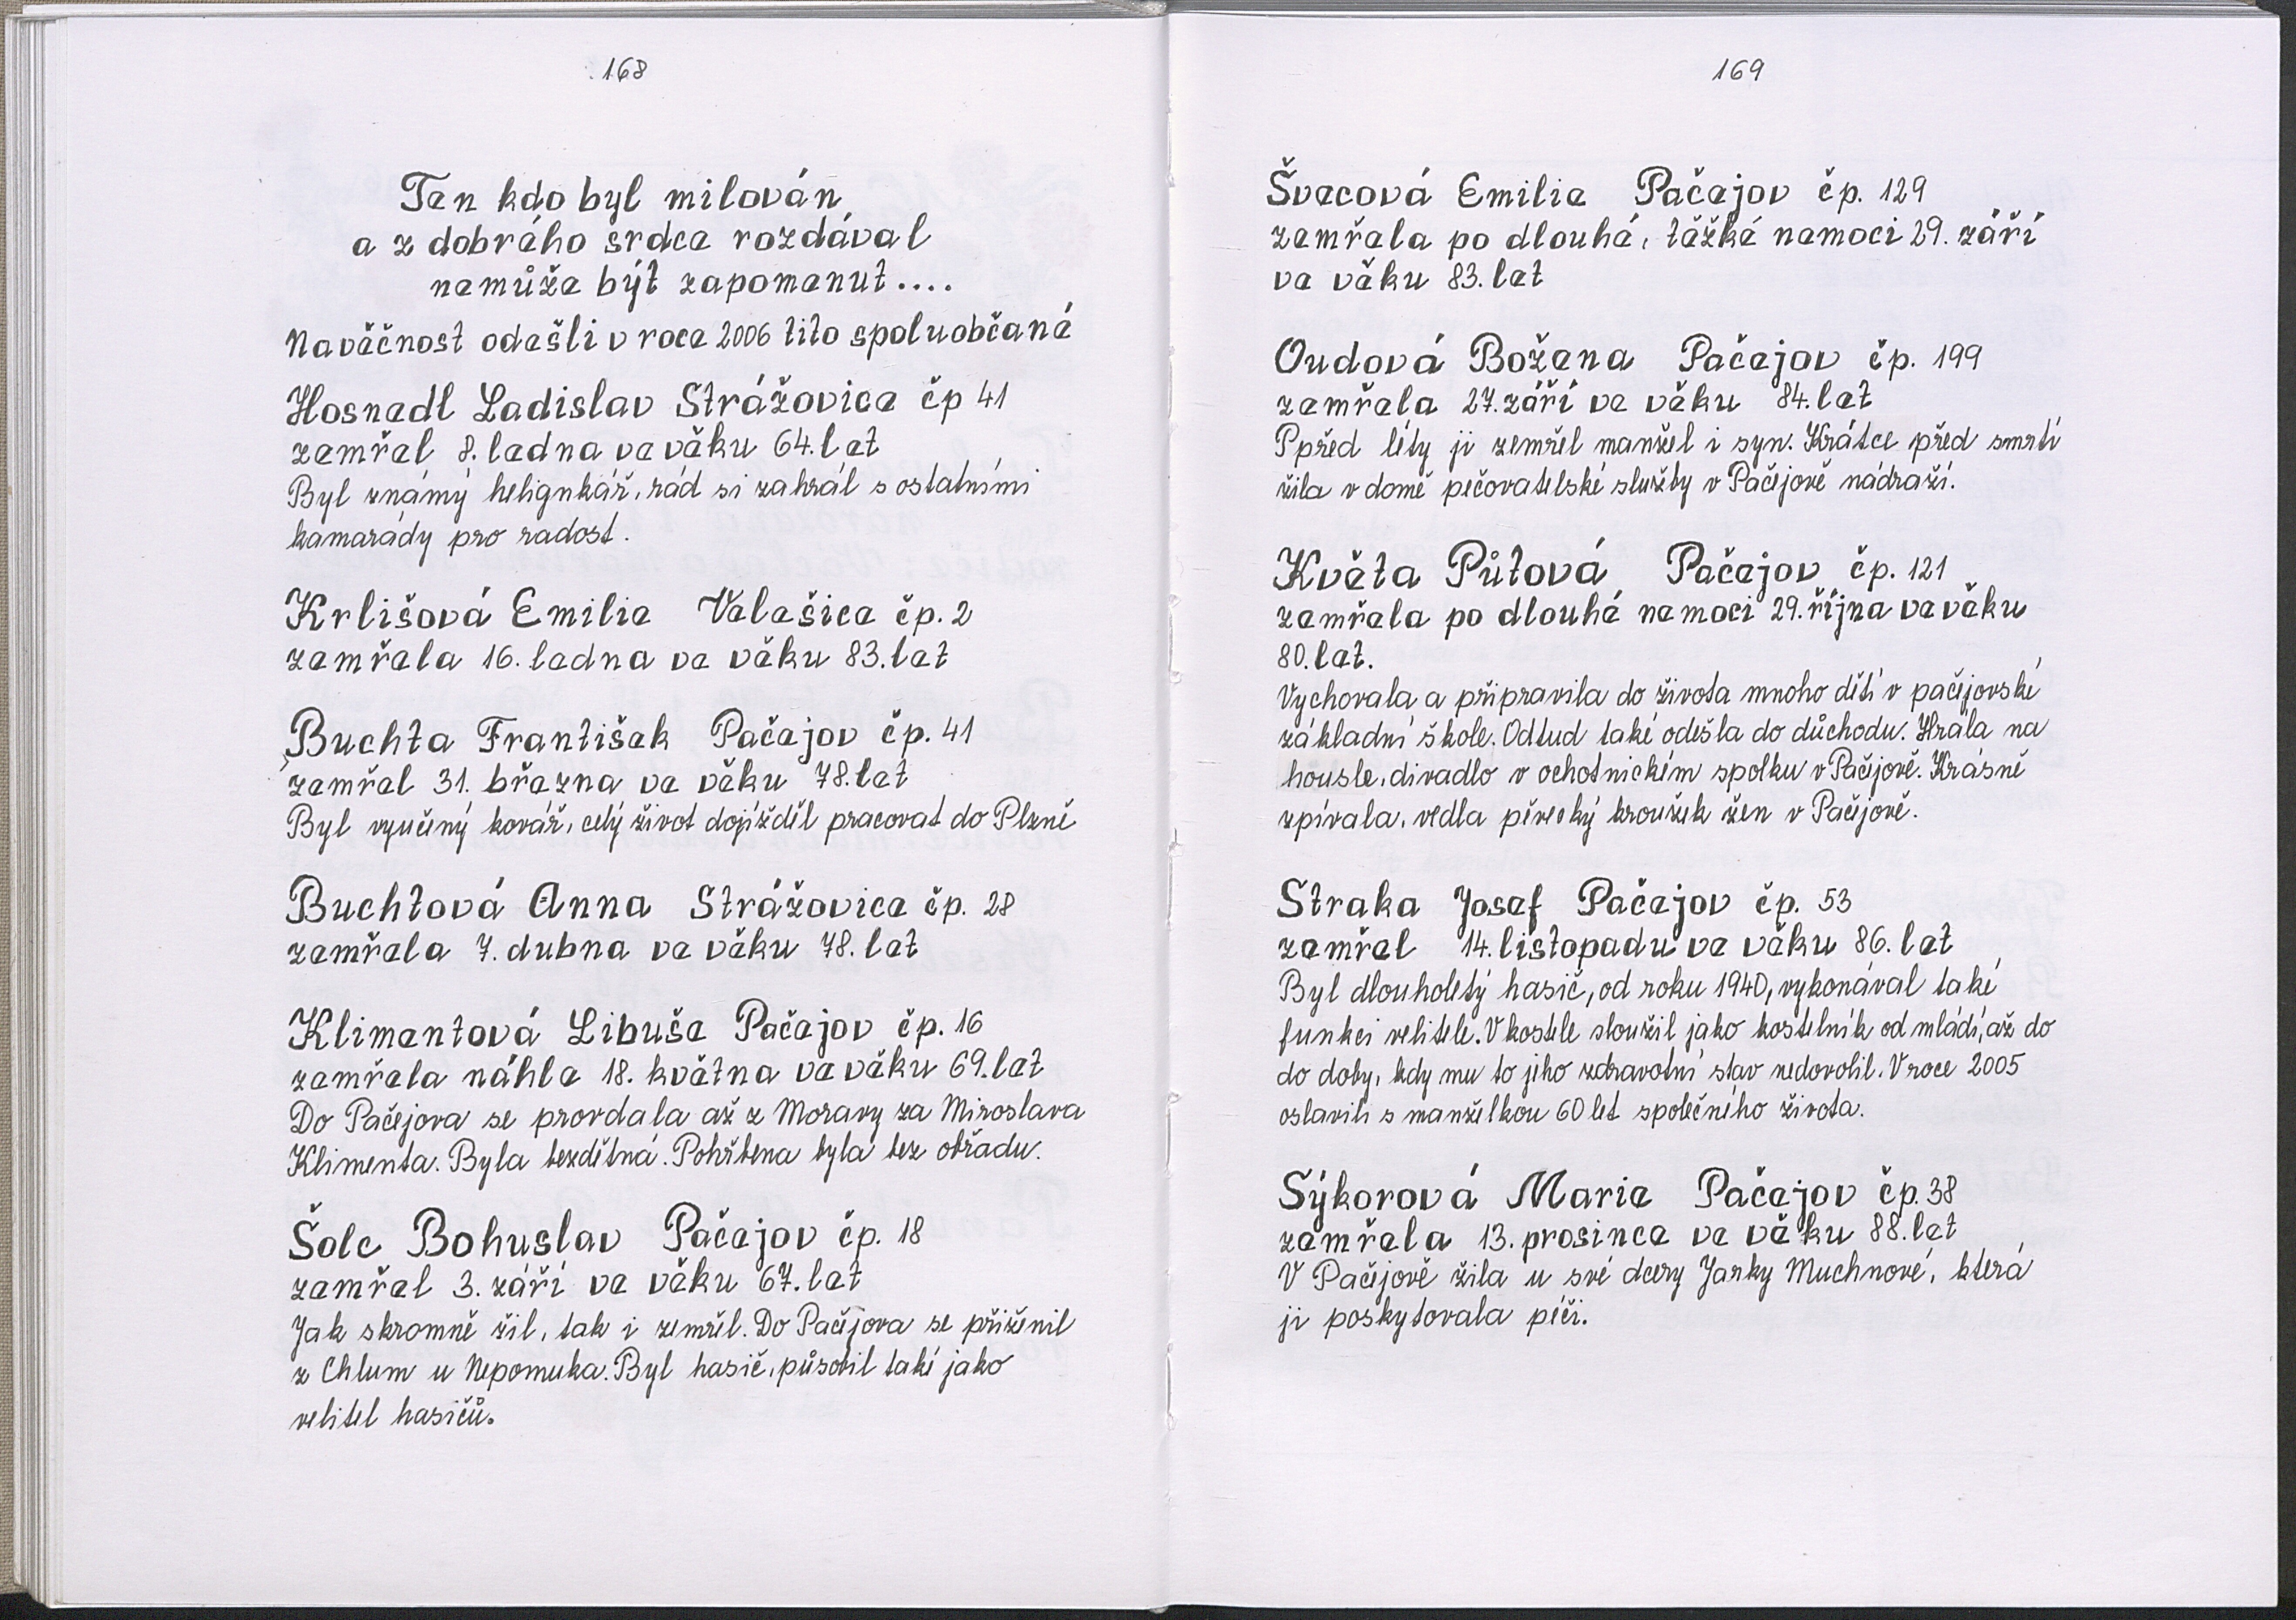 168
Ten kdo byl milován
a z dobrého srdce rozdával
nemůže být zapomenut....
Navěčnost odešli v roce 2006 tito spoluobčané
Hosnedl Ladislav Strážovice čp 41
zemřel 8. ledna ve věku 64. let
Byl známý heligonkář, rád si zahrál s ostatními
kamarády pro radost.
Krlišová Emilie Velešice čp. 2
zemřela 16. ledna ve věku 83. let
Buchta František Pačejov čp. 41
zemřel 31. března ve věku 78. let
Byl vyučený kovář, celý život dojížděl pracovat do Plzně
Buchtová Anna Strážovice čp. 28
zemřela 7. dubna ve věku 78. let
Klimentová Libuše Pačejov čp. 16
zemřela náhle 18. května ve věku 69. let
Do Pačejova se provdala až z Moravy za Miroslava
Klimenta. Byla bezdětná. Pohřbena byla bez obřadu.
Šolc Bohuslav Pačejov čp. 18
zemřel 3. září ve věku 67. let
Jak skromně žil, tak i zemřel. Do Pačejova se přiženil
z Chlum u Nepomuka. Byl hasič, působil také jako
velitel hasičů.
169
Švecová Emilie Pačejov čp. 129
zemřela po dlouhé, těžké nemoci 29. září
ve věku 83. let
Oudová Božena Pačejov čp. 199
zemřela 27. září ve věku 84. let
Ppřed léty ji zemřel manžel i syn. Krátce před smrtí
žila v domě pečovatelské služby v Pačejově nádraží.
Květa Půtová Pačejov čp. 121
zemřela po dlouhé nemoci 29. října ve věku
80. let.
Vychovala a připravila do života mnoho dětí v pačejovské
základní škole. Odtud také odešla do důchodu. Hrála na
housle, divadlo v ochotnickém spolku v Pačejově. Krásně
zpívala, vedla pěvecký kroužek žen v Pačejově.
Straka Josef Pačejov čp. 53
zemřel 14. listopadu ve věku 86. let
Byl dlouholetý hasič, od roku 1940, vykonával také
funkci velitele. V kostele sloužil jako kostelník od mládí, až do
do doby, kdy mu to jeho zdravotní stav nedovolil. V roce 2005
oslavili s manželkou 60 let společného života.
Sýkorová Marie Pačejov čp. 38
zemřela 13. prosince ve věku 88. let
V Pačejově žila u své dcery Jarky Muchnové, která
ji poskytovala péči.